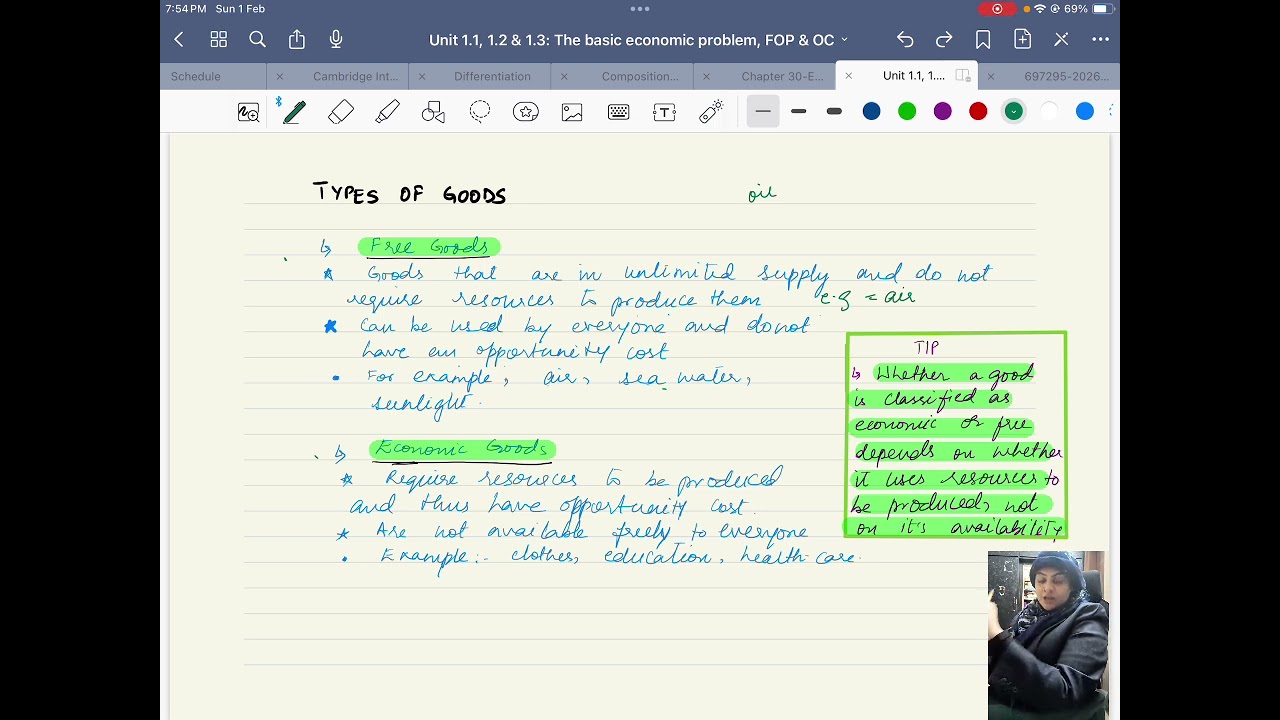 7:54 PM Sun 1 Feb
69%
Unit 1.1, 1.2 & 1.3: The basic economic problem, FOP & OC
Schedule
Cambridge Int...
Differentiation
Composition...
Chapter 30-E...
Unit 1.1, 1....
697295-2026...
TYPES OF GOODS
oil
Free Goods
Goods that are in unlimited supply and do not
require resources to produce them e.g = air
Can be used by everyone and do not
have an opportunity cost
For example, air, sea water,
sunlight.
Economic Goods
Require resources to be produced
and thus have opportunity cost.
Are not available freely to everyone
Example:- clothes, education, health-care.
TIP
Whether a good
is classified as
economic or free
depends on whether
it uses resources to
be produced, not
on it's availability